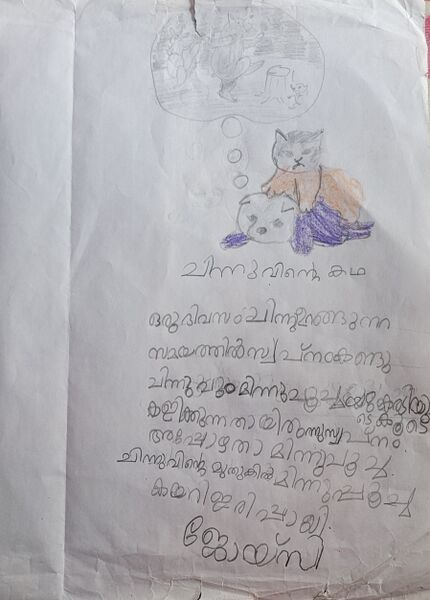 ചിന്നുവിന്റെ കഥ
ഒരു ദിവസം ചിന്നു ഉറങ്ങുന്ന
സമയത്തിൽ സ്വപ്നം കണ്ടു
ചിന്നുവും മിന്നുപൂച്ച
കളിക്കുന്നതായിരുന്നു സ്വപ്നം.
അപ്പോഴതാ മിന്നുപൂച്ച
ചിന്നുവിന്റെ മുതുകിൽ മിന്നുപൂച്ച
കയറി ഇരിപ്പായി.
ജോയ്സി